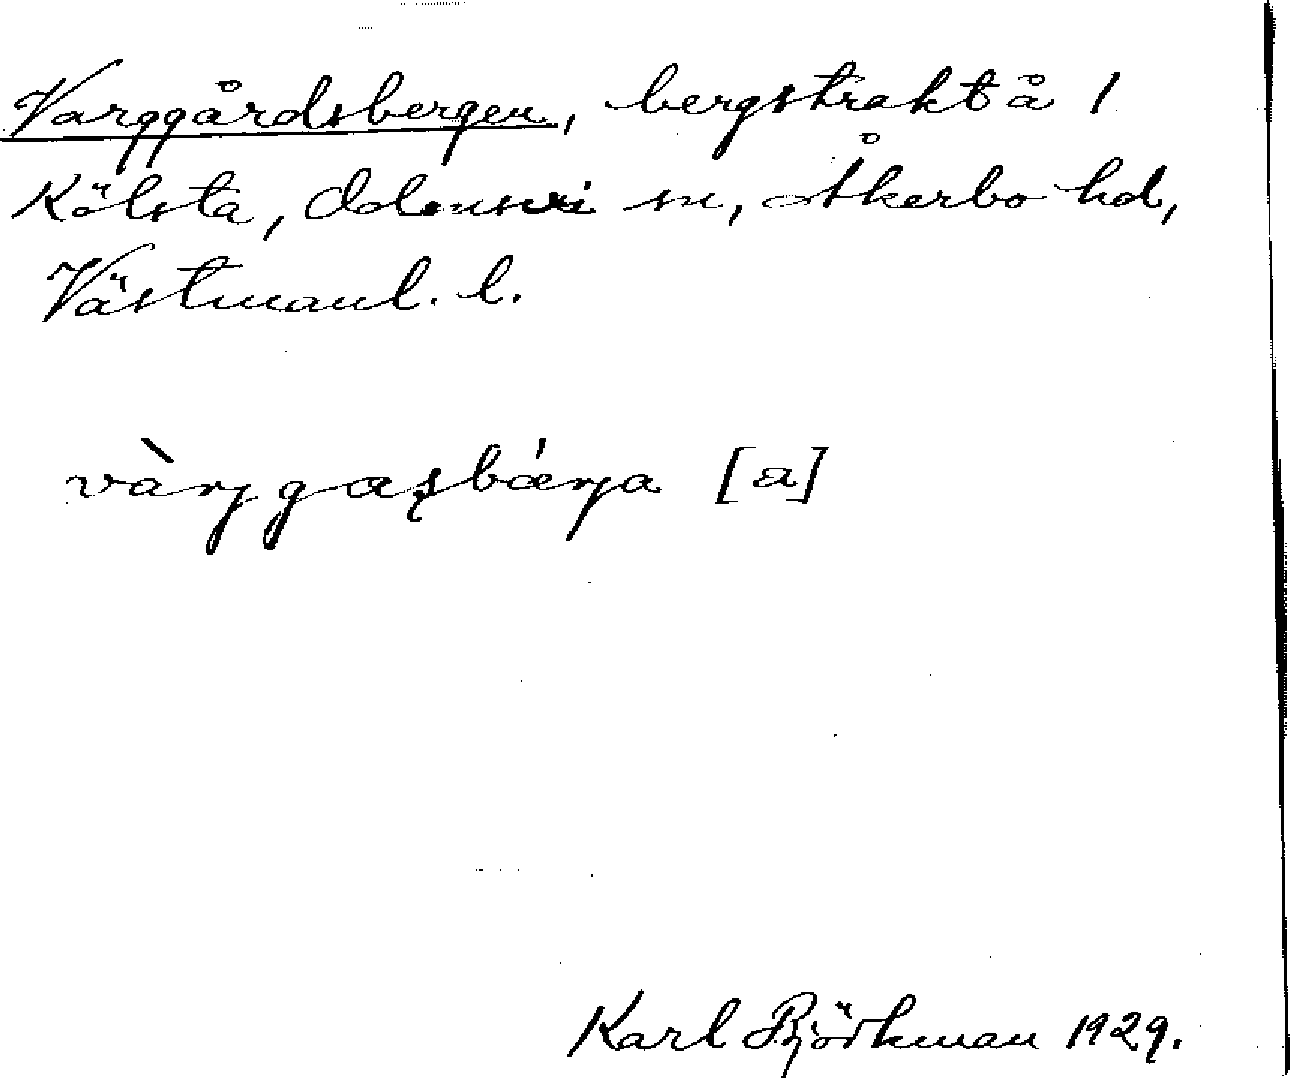 Varggårdsbergen, bergstrakt å 1
Kölsta, Odensvi sn, Åkerbo hd,
Västmanl. l.
vàrjgaʂbǽrja [a]
Karl Björkman 1929.